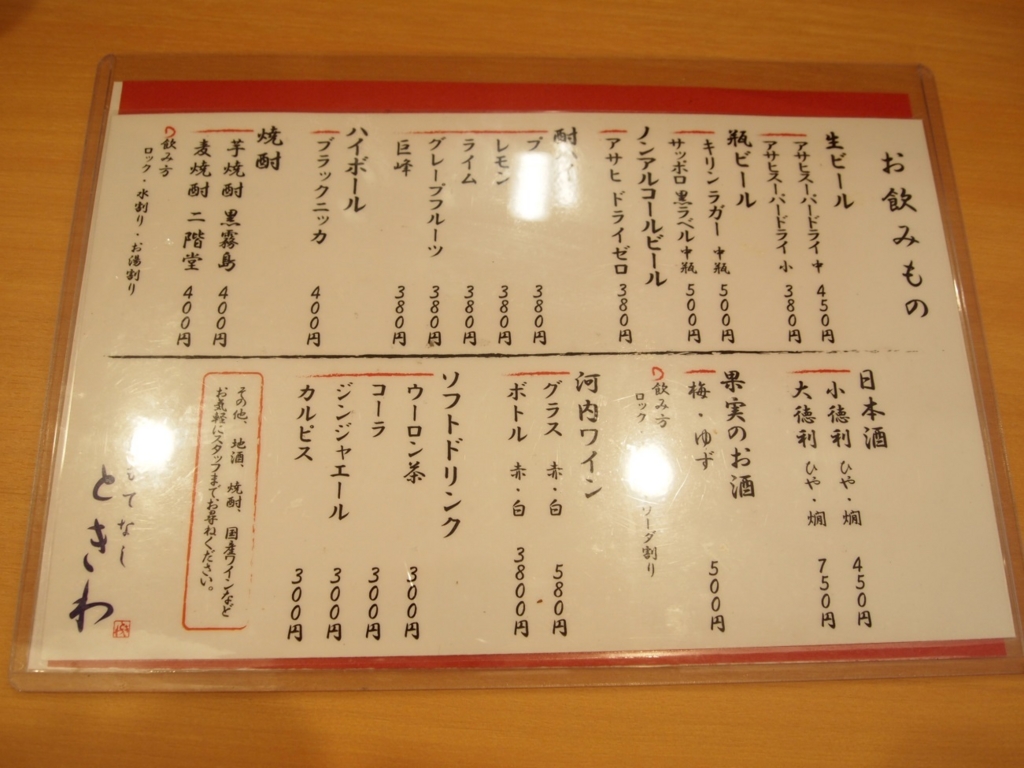 お飲みもの
生ビール
アサヒスーパードライ 中 450円
アサヒスーパードライ 小 380円
瓶ビール
キリンラガー 中瓶 500円
サッポロ黒ラベル 中瓶 500円
ノンアルコールビール
アサヒ ドライゼロ 380円
酎ハイ
プ 380円
レモン 380円
ライム 380円
グレープフルーツ 380円
巨峰 380円
ハイボール
ブラックニッカ 400円
焼酎
芋焼酎 黒霧島 400円
麦焼酎 二階堂 400円
飲み方
ロック・水割り・お湯割り
日本酒
小徳利 ひや・燗 450円
大徳利 ひや・燗 750円
果実のお酒
梅・ゆず 500円
飲み方
ロック・ ソーダ割り
河内ワイン
グラス 赤・白 580円
ボトル 赤・白 3800円
ソフトドリンク
ウーロン茶 300円
コーラ 300円
ジンジャエール 300円
カルピス 300円
その他、地酒、焼酎、国産ワインなど
お気軽にスタッフまでお尋ねください。
てなし
ときわ